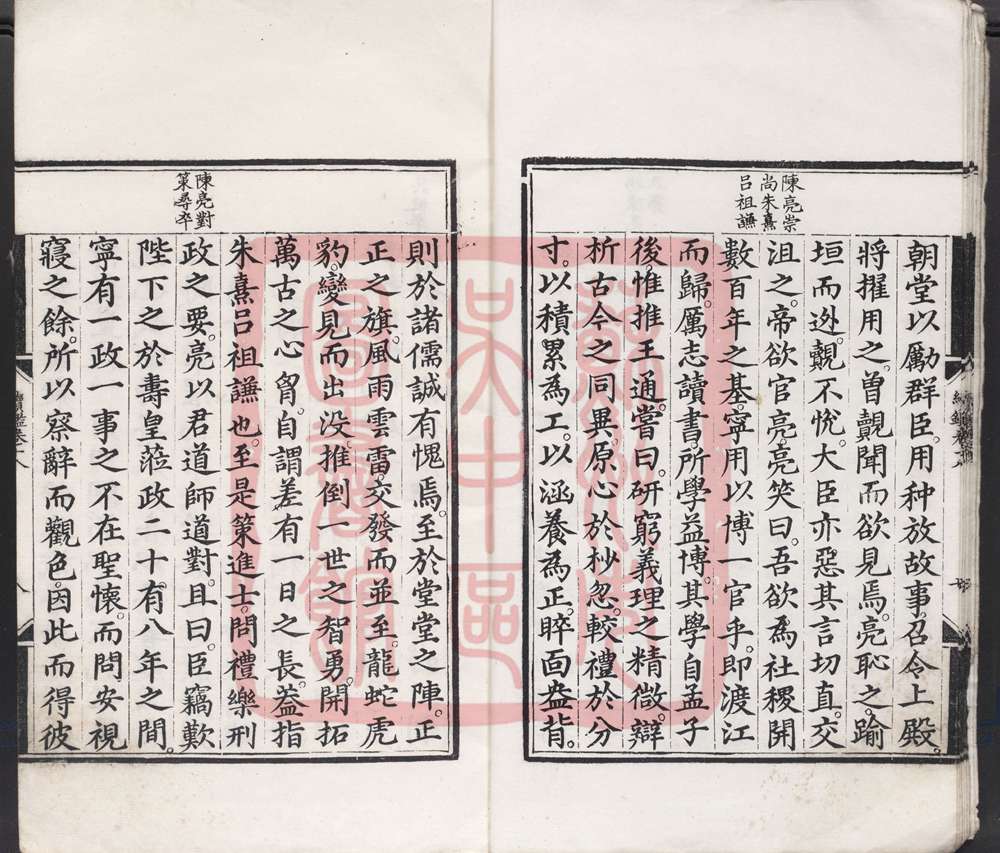 陳亮崇
尚朱熹
呂祖謙
朝堂以勵群臣。用种放故事召令上殿。
將擢用之。曽覿聞而欲見焉。亮恥之。踰
垣而迯。覿不悅。大臣亦惡其言切直。交
沮之。帝欲官亮。亮笑曰。吾欲為社稷開
數百年之基。寧用以博一官乎。即渡江
而歸。厲志讀書。所學益博。其學自孟子
後。惟推王通。嘗曰。研窮義理之精微。辯
析古今之同異。原心於杪忽。較禮於分
寸。以積累為工。以涵養為正。睟面盎背。
陳亮對
策尋卒
則於諸儒誠有愧焉。至於堂堂之陣。正
正之旗。風雨雲雷。交發而並至。龍蛇虎
豹。變見而出没。推倒一世之智勇。開拓
萬古之心胷。自謂差有一日之長。葢指
朱熹呂祖謙也。至是策進士。問禮樂刑
政之要。亮以君道師道對。且曰。臣竊歎
陛下之於壽皇。蒞政二十有八年之間。
寧有一政一事之不在聖懷。而問安視
寢之餘。所以察辭而觀色。因此而得彼